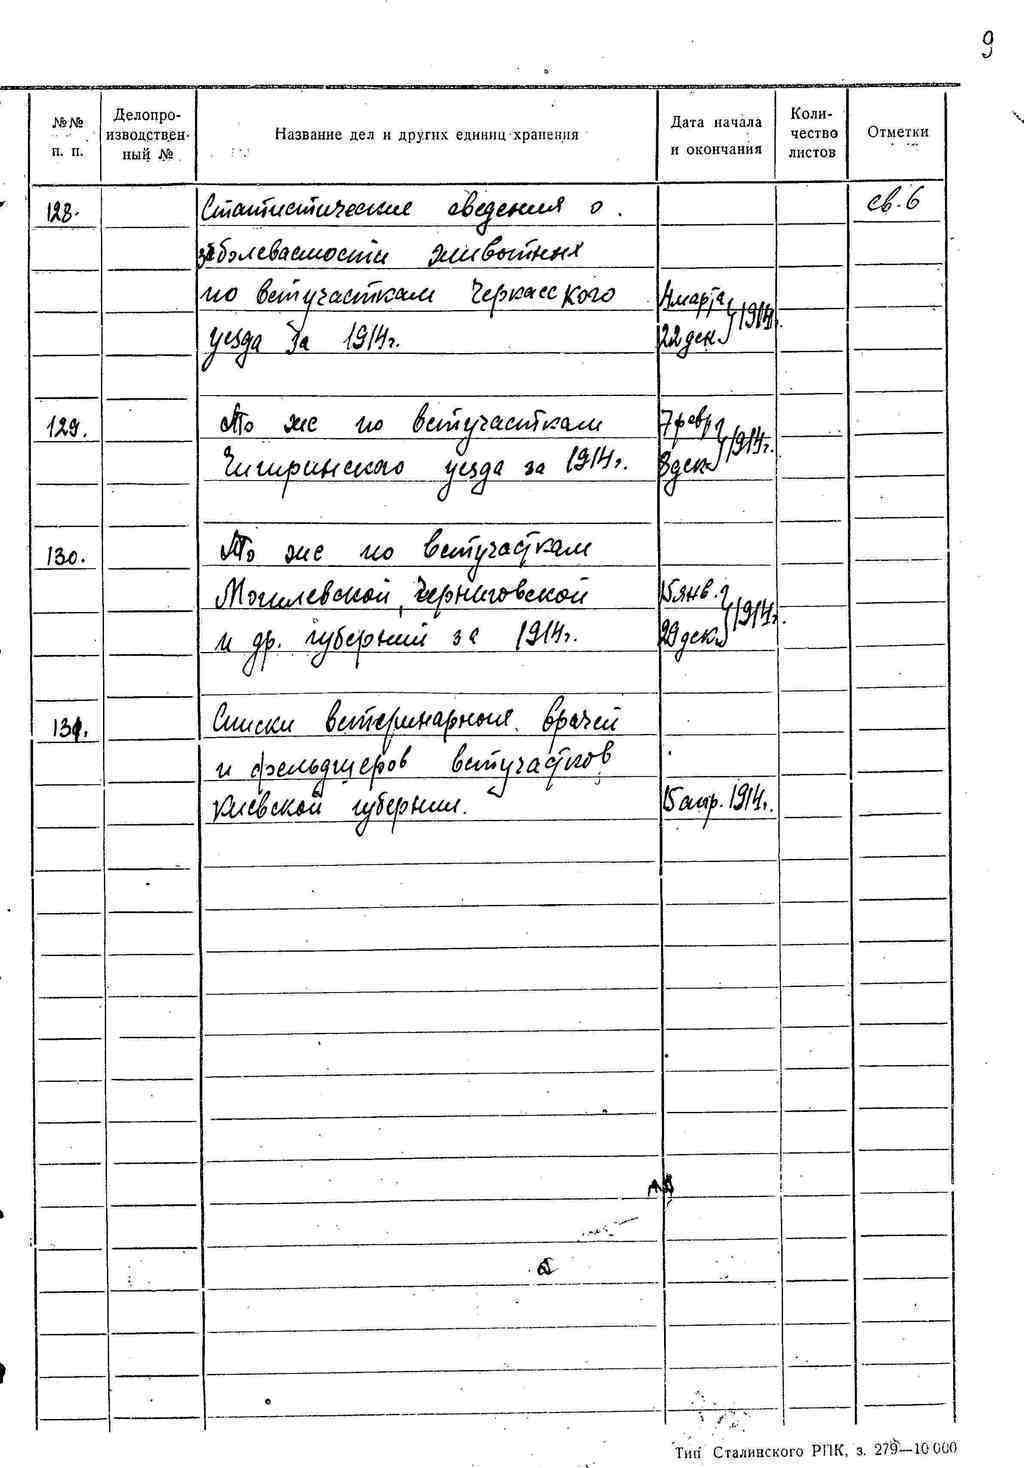 9
№№ п. п.
Делопро-
изводствен-
ный №
Название дел и других единиц хранения
Дата начала
и окончания
Коли-
чество
листов
Отметки
128. Статистические сведения о св. 6
заболеваемости животных
по ветучасткам Черкасского 4 марта
уезда за 1914г. 22 дек. 1914г.
129. То же по ветучасткам 7 февр.
Чигиринского уезда за 1914г. 8 дек. 1914г.
130. То же по ветучасткам
Могилевской, Черниговской 15 янв.
и др. губерний за 1914г. 29 дек. 1914г.
131. Списки ветеринарных врачей
и фельдшеров ветучастков
Киевской губернии. 15 апр. 1914г.
Тип Сталинского РПК, з. 279—10 000